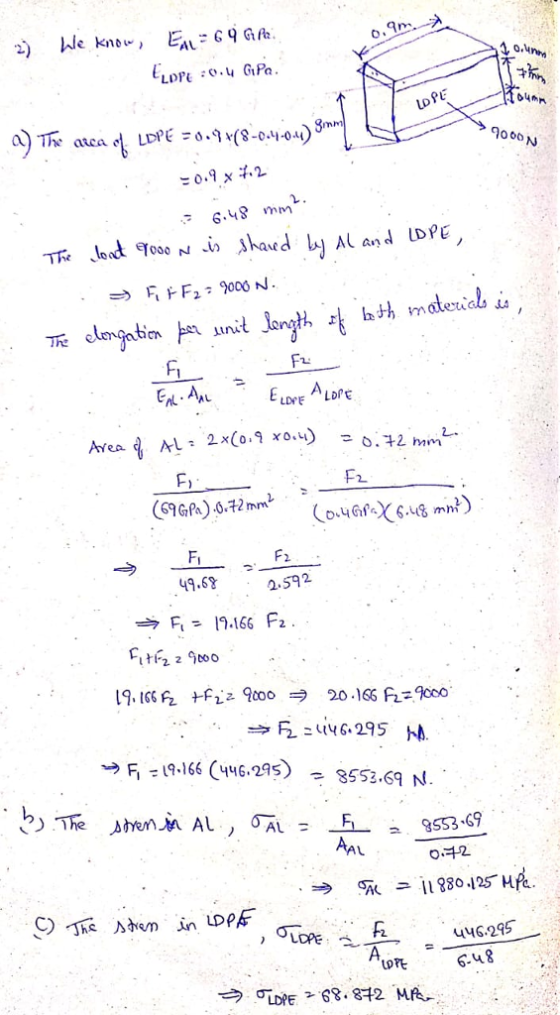 2) We know, E_AL = 69 GPa.
E_LDPE = 0.4 GPa.
0.9m
0.4mm
7.2mm
0.4mm
8mm
LDPE
9000 N
a) The area of LDPE = 0.9 x (8-0.4-0.4)
= 0.9 x 7.2
= 6.48 mm².
The load 9000 N is shared by Al and LDPE,
⇒ F₁ + F₂ = 9000 N.
The elongation per unit length of both materials is,
F₁ / (E_AL . A_AL) = F₂ / (E_LDPE A_LDPE)
Area of AL = 2 x (0.9 x 0.4) = 0.72 mm²
F₁ / ((69GPa) . 0.72mm²) = F₂ / ((0.4GPa)(6.48 mm²))
⇒ F₁ / 49.68 = F₂ / 2.592
⇒ F₁ = 19.166 F₂.
F₁ + F₂ = 9000
19.166 F₂ + F₂ = 9000 ⇒ 20.166 F₂ = 9000
⇒ F₂ = 446.295 N.
⇒ F₁ = 19.166 (446.295) = 8553.69 N.
b) The stress in AL, σ_AL = F₁ / A_AL = 8553.69 / 0.72
⇒ σ_AL = 11880.125 MPa.
c) The stress in LDPE, σ_LDPE = F₂ / A_LDPE = 446.295 / 6.48
⇒ σ_LDPE = 68.872 MPa.